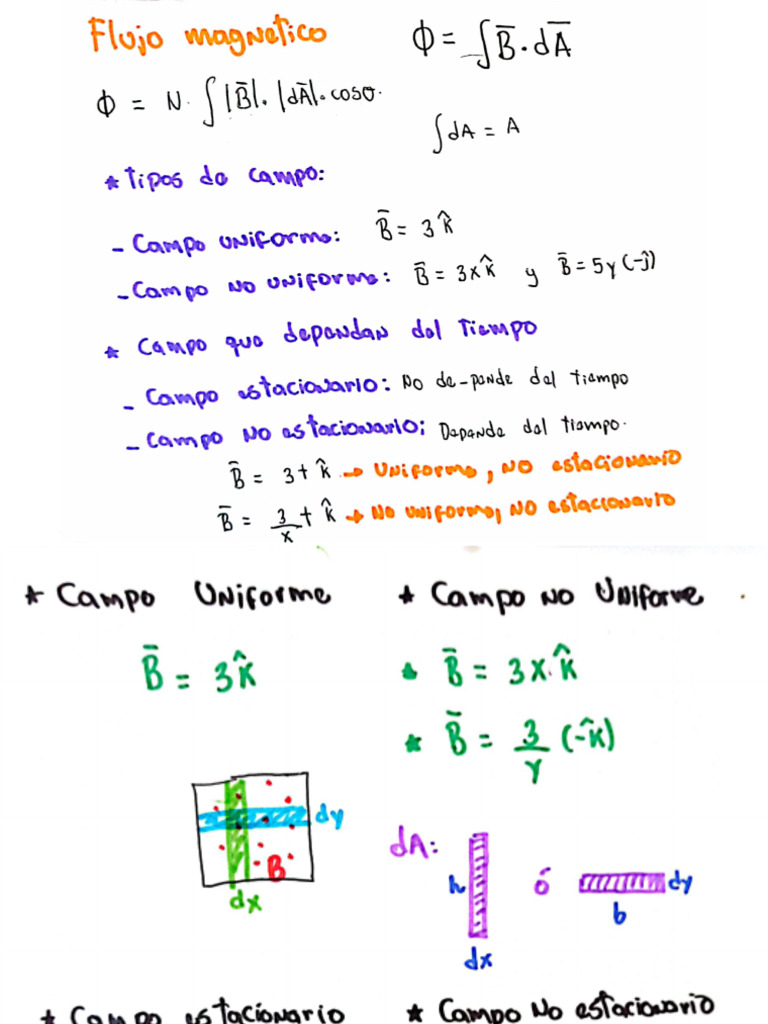 Flujo magnetico
Φ = ∫B̄·dĀ
Φ = N·∫|B̄|·|dĀ|·cosθ.
∫dA = A
* Tipos de campo:
- Campo uniforme: B̄ = 3k̂
- Campo no uniforme: B̄ = 3xk̂ y B̄ = 5y(-ĵ)
* Campo que dependan del Tiempo
- Campo estacionario: No de-pende del tiempo
- Campo No estacionario: Depende del tiempo.
B̄ = 3t k̂ → Uniforme, no estacionario
B̄ = 3/x t k̂ → No uniforme, no estaccionario
* Campo Uniforme
* Campo no Uniforve
B̄ = 3k̂
* B̄ = 3x.k̂
* B̄ = 3/y (-k̂)
dy
B
dx
dA:
h
dx
ó
dy
b
* Campo estacionario
* Campo No estacionario